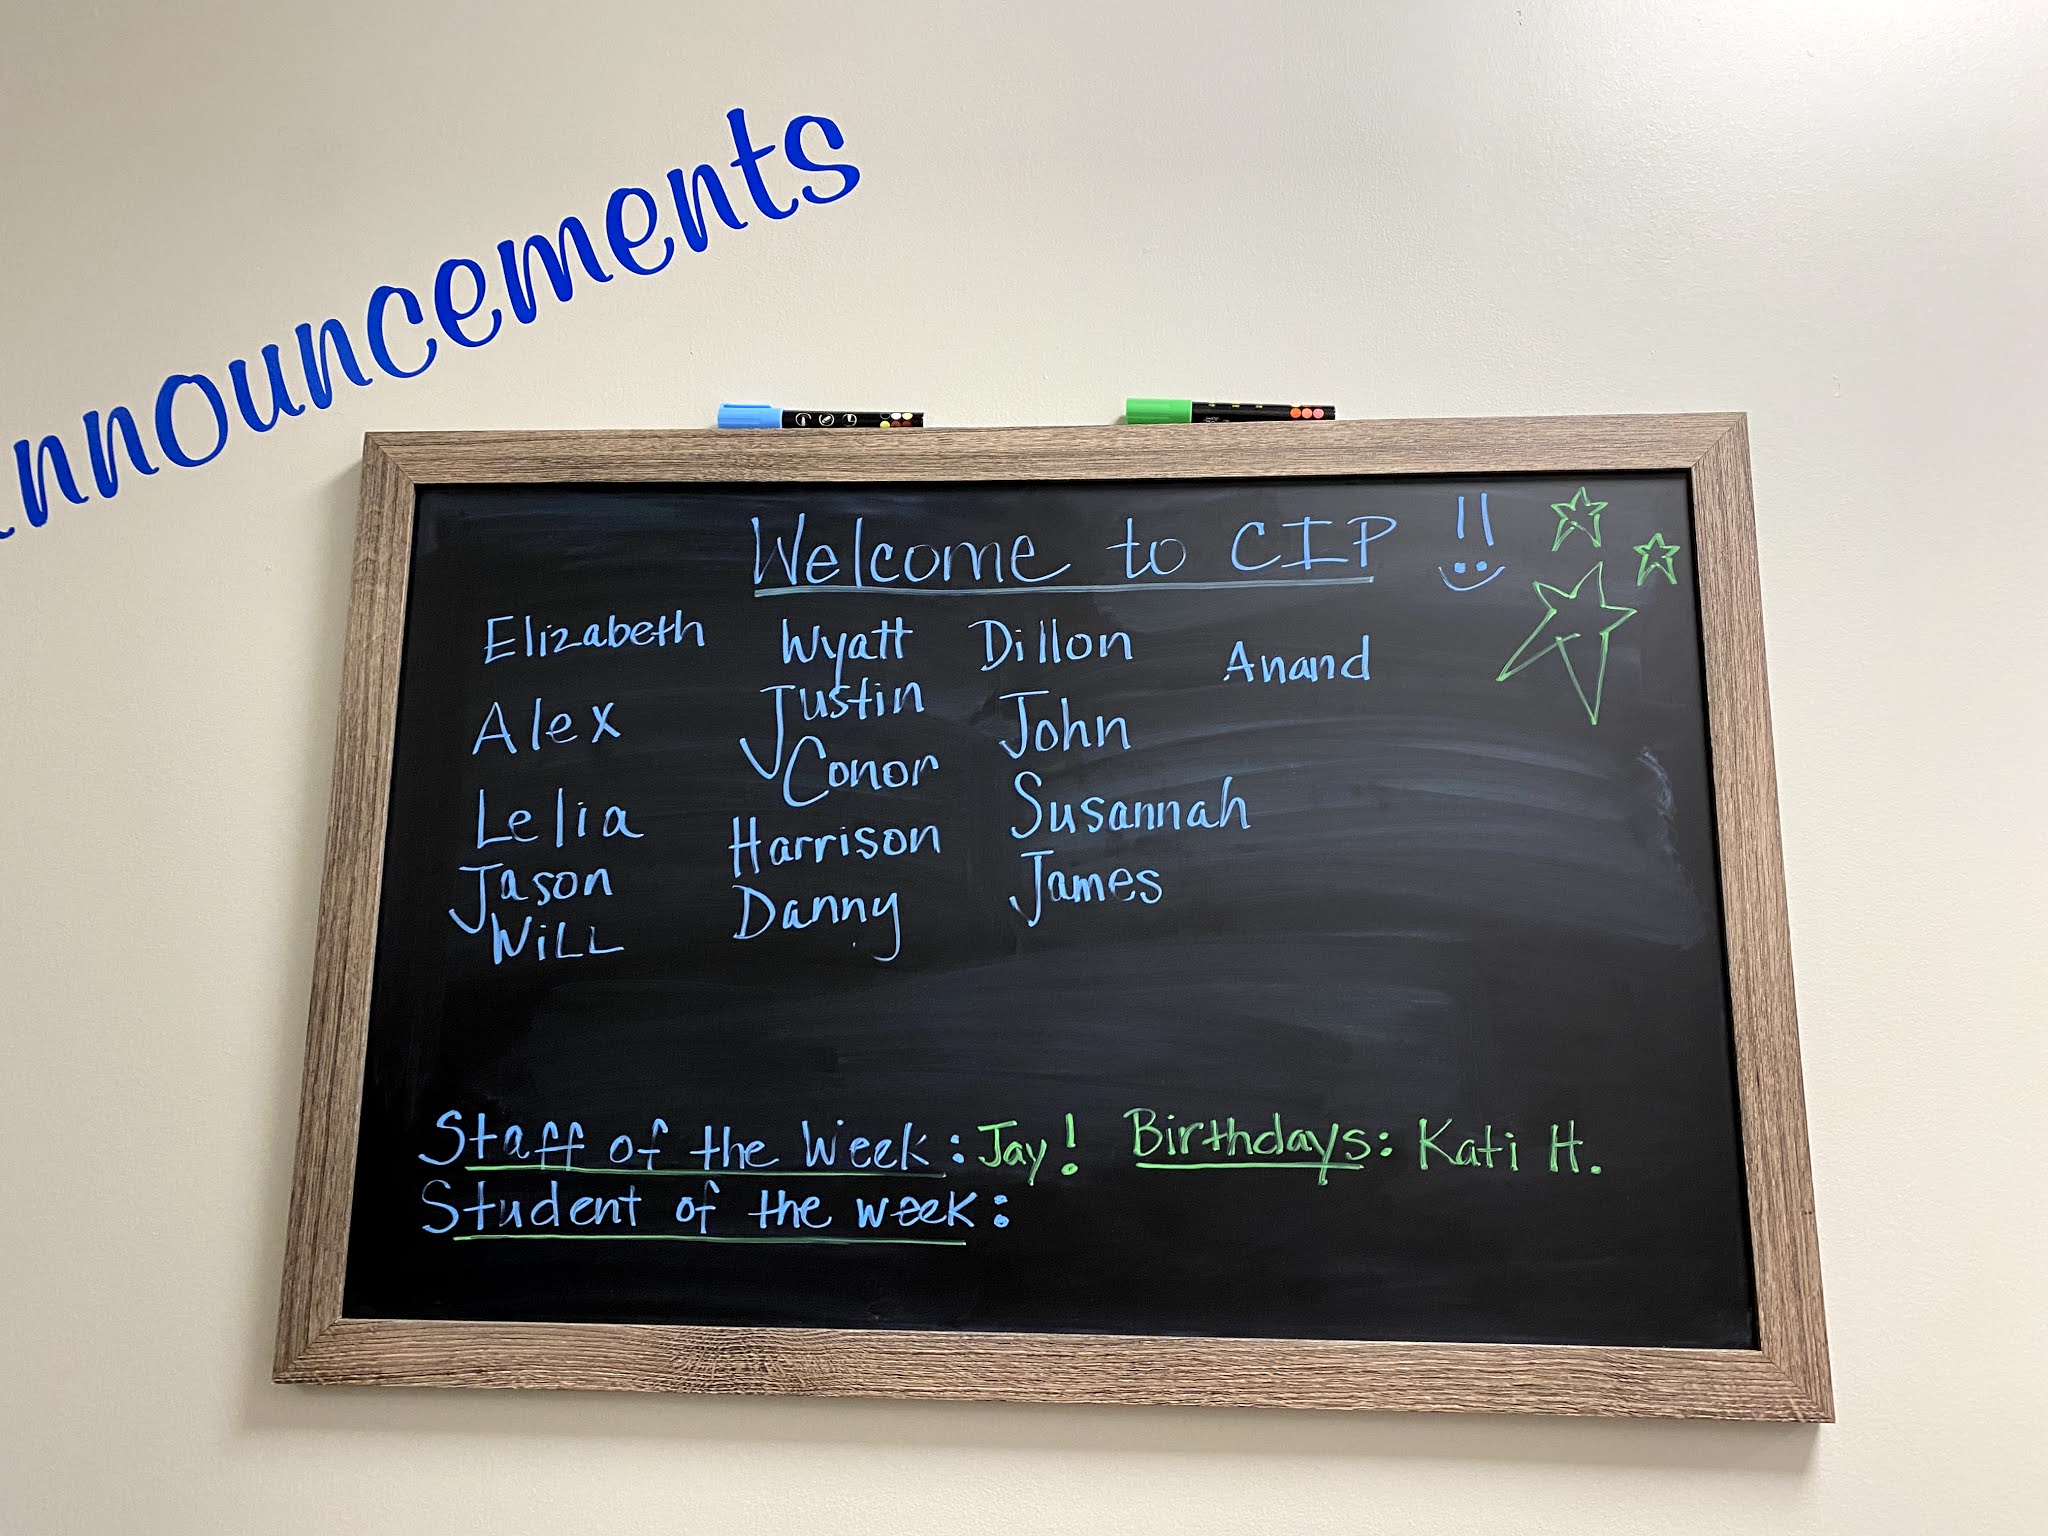 nnouncements
Welcome to CIP !!
Elizabeth Wyatt Dillon Anand
Alex Justin John
Conor
Lelia Harrison Susannah
Jason Danny James
WiLL
Staff of the Week: Jay! Birthdays: Kati H.
Student of the week: